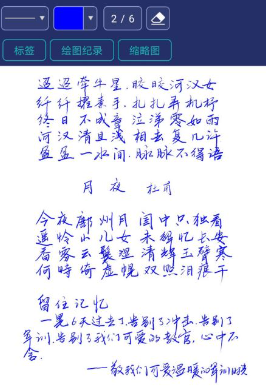 2 / 6
标签
绘图纪录
缩略图
迢迢牵牛星,皎皎河汉女
纤纤擢素手,扎扎弄机杼
终日不成章 泣涕零如雨
河汉清且浅 相去复几许
盈盈一水间,脉脉不得语
月 夜 杜甫
今夜鄜州月 闺中只独看
遥怜小儿女 未解忆长安
香雾云鬟湿 清辉玉臂寒
何时倚虚幌 双照泪痕干
留住记忆
一晃6天过去了,告别了冲击,告别了
军训,告别了我们可爱的教官,心中不
舍.
——敬我们可爱温暖的军训